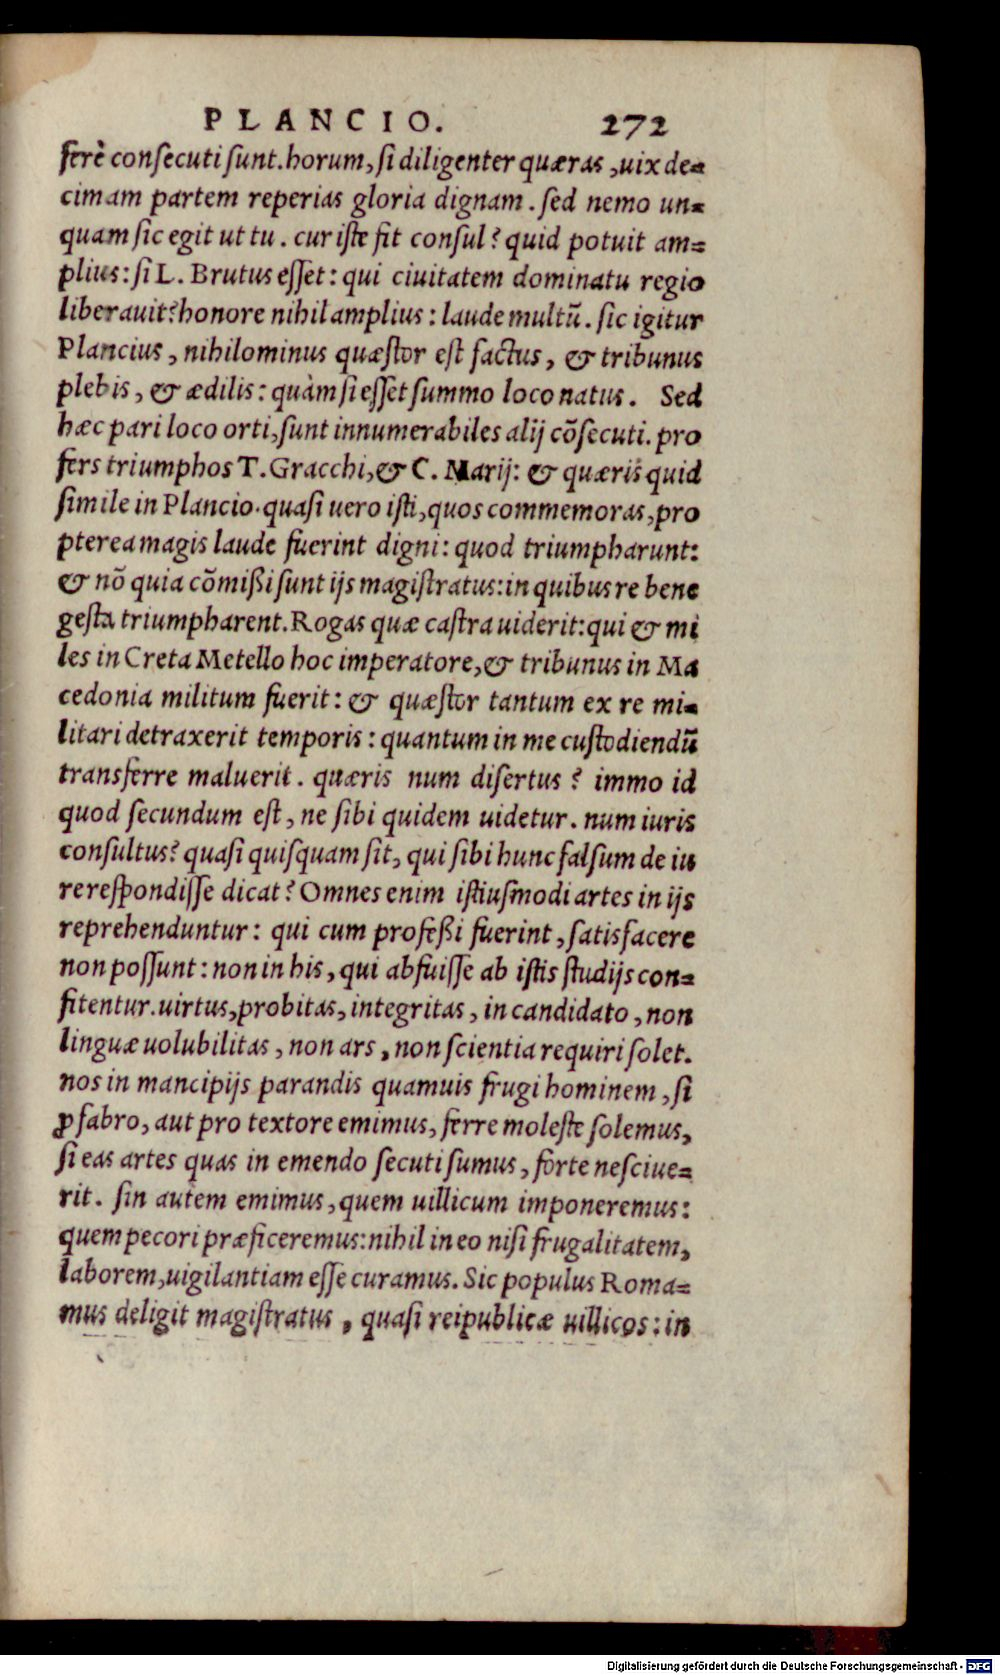 PLANCIO. 272
ferè conſecuti ſunt. horum, ſi diligenter quæras, uix de=
cimam partem reperias gloria dignam. ſed nemo un=
quam ſic egit ut tu. cur iſte fit conſul? quid potuit am=
plius: ſi L. Brutus eſſet: qui ciuitatem dominatu regio
liberauit? honore nihil amplius: laude multũ. ſic igitur
Plancius, nihilominus quæſtor eſt factus, & tribunus
plebis, & ædilis: quàm ſi eſſet ſummo loco natus. Sed
hæc pari loco orti, ſunt innumerabiles alij cõſecuti. pro
fers triumphos T. Gracchi, & C. Marij: & quæris quid
ſimile in Plancio. quaſi uero iſti, quos commemoras, pro
pterea magis laude fuerint digni: quod triumpharunt:
& nõ quia cõmißi ſunt ijs magiſtratus: in quibus re bene
geſta triumpharent. Rogas quæ caſtra uiderit: qui & mi
les in Creta Metello hoc imperatore, & tribunus in Ma
cedonia militum fuerit: & quæſtor tantum ex re mi=
litari detraxerit temporis: quantum in me cuſtodiendũ
transferre maluerit. quæris num diſertus? immo id
quod ſecundum eſt, ne ſibi quidem uidetur. num iuris
conſultus? quaſi quiſquam ſit, qui ſibi hunc falſum de iu
re reſpondiſſe dicat? Omnes enim iſtiuſmodi artes in ijs
reprehenduntur: qui cum profeßi fuerint, ſatisfacere
non poſſunt: non in his, qui abfuiſſe ab iſtis ſtudijs con=
fitentur. uirtus, probitas, integritas, in candidato, non
linguæ uolubilitas, non ars, non ſcientia requiri ſolet.
nos in mancipijs parandis quamuis frugi hominem, ſi
ꝓ fabro, aut pro textore emimus, ferre moleſte ſolemus,
ſi eas artes quas in emendo ſecuti ſumus, forte neſciue=
rit. ſin autem emimus, quem uillicum imponeremus:
quem pecori præficeremus: nihil in eo niſi frugalitatem,
laborem, uigilantiam eſſe curamus. Sic populus Roma=
mus deligit magiſtratus, quaſi reipublicæ uillicos: in
Digitalisierung gefördert durch die Deutsche Forschungsgemeinschaft - DFG